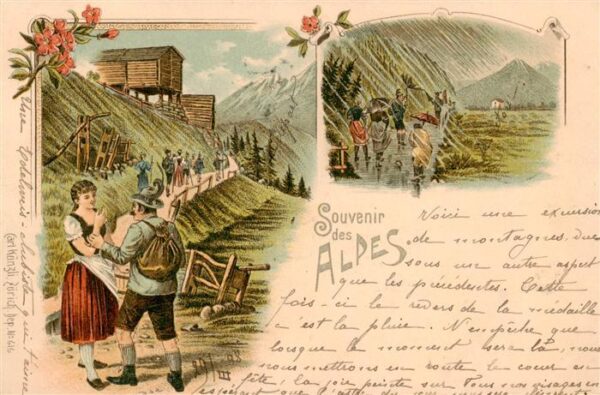 Souvenir
des
ALPES.
Voici une excursion
de montagnes, vue
sous un autre aspect
que les précédentes. Cette
fois-ci le revers de la médaille
c'est la pluie. N'empêche que
lorsque le moment sera là, nous
nous mettrons en route le cœur en
fête; la joie peinte sur tous nos visages en
espérant que
Une Edelweis-clubiste qui t'aime
Carl Künzli, Zürich, Dep. № 616